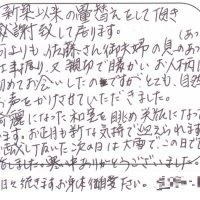 新築以来の畳替えをして頂き
感謝致して居ります。
何よりも佐藤さん御夫婦の息のあっ
仕事振り、又親切で暖かいお人柄に
初めてお会いしたのですが、とても自然
お話をかわさせていただきました。
綺麗になった和室を眺め笑顔になって
ます。お正月も新な気持で迎えられます
致して頂いた次の日は大雪でこの日で
しました。寒い中ありがとうございました
日々続きますお身体御自愛下さい。